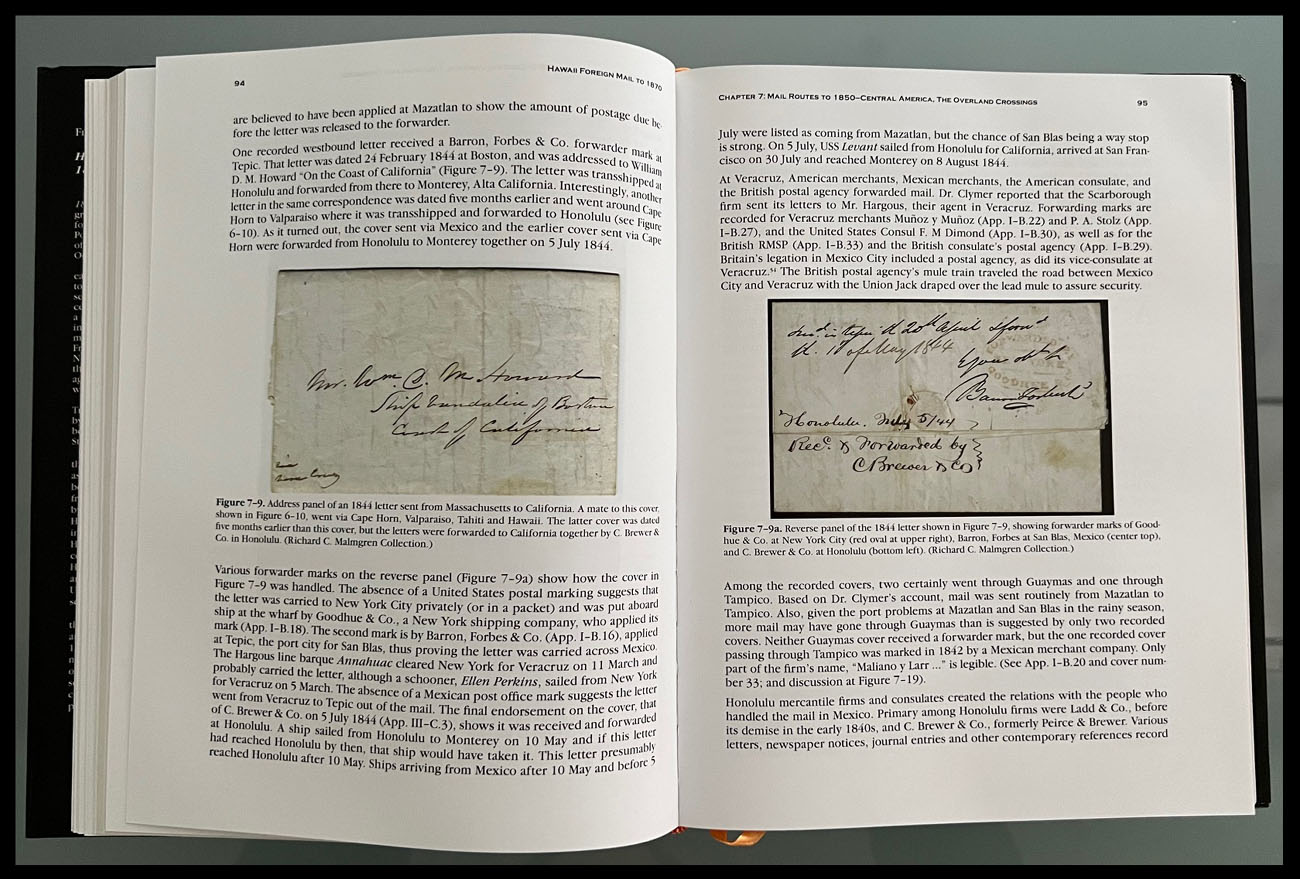 94
HAWAII FOREIGN MAIL TO 1870
are believed to have been applied at Mazatlan to show the amount of postage due be-
fore the letter was released to the forwarder.
One recorded westbound letter received a Barron, Forbes & Co. forwarder mark at
Tepic. That letter was dated 24 February 1844 at Boston, and was addressed to William
D. M. Howard “On the Coast of California” (Figure 7–9). The letter was transshipped at
Honolulu and forwarded from there to Monterey, Alta California. Interestingly, another
letter in the same correspondence was dated five months earlier and went around Cape
Horn to Valparaiso where it was transshipped and forwarded to Honolulu (see Figure
6–10). As it turned out, the cover sent via Mexico and the earlier cover sent via Cape
Horn were forwarded from Honolulu to Monterey together on 5 July 1844.
Mr. Wm. D. M. Howard
Ship Vandalia of Boston
Coast of California
Figure 7–9. Address panel of an 1844 letter sent from Massachusetts to California. A mate to this cover,
shown in Figure 6–10, went via Cape Horn, Valparaiso, Tahiti and Hawaii. The latter cover was dated
five months earlier than this cover, but the letters were forwarded to California together by C. Brewer &
Co. in Honolulu. (Richard C. Malmgren Collection.)
Various forwarder marks on the reverse panel (Figure 7–9a) show how the cover in
Figure 7–9 was handled. The absence of a United States postal marking suggests that
the letter was carried to New York City privately (or in a packet) and was put aboard
ship at the wharf by Goodhue & Co., a New York shipping company, who applied its
mark (App. I–B.18). The second mark is by Barron, Forbes & Co. (App. I–B.16), applied
at Tepic, the port city for San Blas, thus proving the letter was carried across Mexico.
The Hargous line barque Annahuac cleared New York for Veracruz on 11 March and
probably carried the letter, although a schooner, Ellen Perkins, sailed from New York
for Veracruz on 5 March. The absence of a Mexican post office mark suggests the letter
went from Veracruz to Tepic out of the mail. The final endorsement on the cover, that
of C. Brewer & Co. on 5 July 1844 (App. III–C.3), shows it was received and forwarded
at Honolulu. A ship sailed from Honolulu to Monterey on 10 May and if this letter
had reached Honolulu by then, that ship would have taken it. This letter presumably
reached Honolulu after 10 May. Ships arriving from Mexico after 10 May and before 5
CHAPTER 7: MAIL ROUTES TO 1850–CENTRAL AMERICA, THE OVERLAND CROSSINGS
95
July were listed as coming from Mazatlan, but the chance of San Blas being a way stop
is strong. On 5 July, USS Levant sailed from Honolulu for California, arrived at San Fran-
cisco on 30 July and reached Monterey on 8 August 1844.
At Veracruz, American merchants, Mexican merchants, the American consulate, and
the British postal agency forwarded mail. Dr. Clymer reported that the Scarborough
firm sent its letters to Mr. Hargous, their agent in Veracruz. Forwarding marks are
recorded for Veracruz merchants Muñoz y Muñoz (App. I–B.22) and P. A. Stolz (App.
I–B.27), and the United States Consul F. M Dimond (App. I–B.30), as well as for the
British RMSP (App. I–B.33) and the British consulate’s postal agency (App. I–B.29).
Britain’s legation in Mexico City included a postal agency, as did its vice-consulate at
Veracruz.⁵⁴ The British postal agency’s mule train traveled the road between Mexico
City and Veracruz with the Union Jack draped over the lead mule to assure security.
in Tepic 20th April &
1st of May 1844
Honolulu. July 5/44
Recd. & Forwarded by
C Brewer & Co
Figure 7–9a. Reverse panel of the 1844 letter shown in Figure 7–9, showing forwarder marks of Good-
hue & Co. at New York City (red oval at upper right), Barron, Forbes at San Blas, Mexico (center top),
and C. Brewer & Co. at Honolulu (bottom left). (Richard C. Malmgren Collection.)
Among the recorded covers, two certainly went through Guaymas and one through
Tampico. Based on Dr. Clymer’s account, mail was sent routinely from Mazatlan to
Tampico. Also, given the port problems at Mazatlan and San Blas in the rainy season,
more mail may have gone through Guaymas than is suggested by only two recorded
covers. Neither Guaymas cover received a forwarder mark, but the one recorded cover
passing through Tampico was marked in 1842 by a Mexican merchant company. Only
part of the firm’s name, “Maliano y Larr ...” is legible. (See App. I–B.20 and cover num-
ber 33; and discussion at Figure 7–19).
Honolulu mercantile firms and consulates created the relations with the people who
handled the mail in Mexico. Primary among Honolulu firms were Ladd & Co., before
its demise in the early 1840s, and C. Brewer & Co., formerly Peirce & Brewer. Various
letters, newspaper notices, journal entries and other contemporary references record